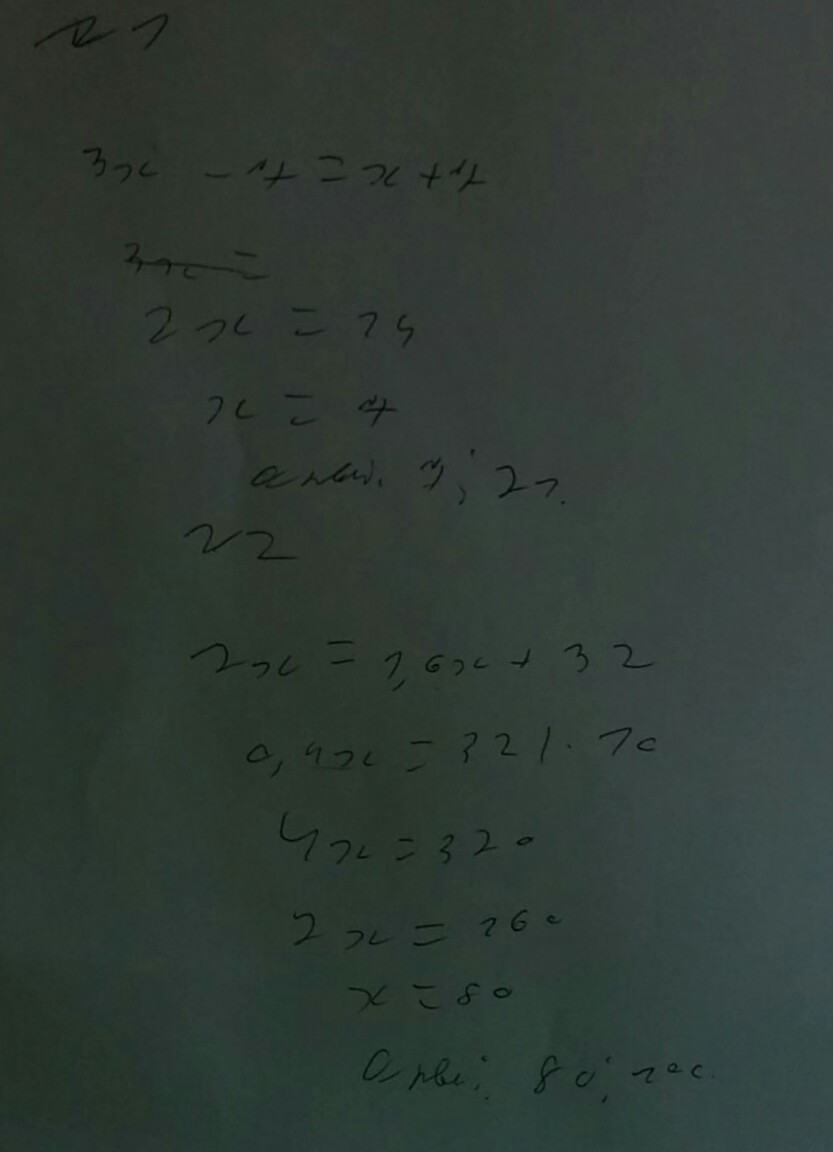 № 1
3x - 7 = x + 7
3x =
2x = 14
x = 7
ответ. 7; 21.
№ 2
2x = 1,6x + 32
0,4x = 32 | · 10
4x = 320
2x = 160
x = 80
ответ: 80; 100.